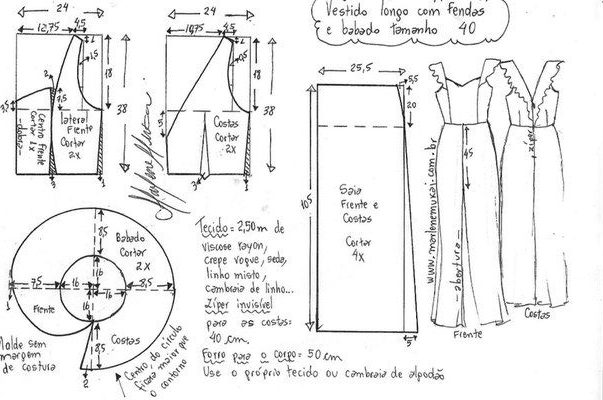 Vestido longo com Fendas
e babado tamanho 40
24
12,75
4,5
1
1,5
18
38
2
7,5
Centro frente
Cortar 1x
dobra
lateral
Frente
Cortar
2x
1
24
10,75
4,5
1
18
38
5
Costas
Cortar
2x
3
1
Marlene Mukai
25,5
5,5
20
105
Saia
Frente e
Costas
Cortar
4x
5
www.marlenemukai.com.br
45
abertura
Frente
zíper
Costas
Babado
Cortar
2x
8,5
16
7,5
16
16
8,5
16
1
Frente
8,5
Costas
2
Molde sem
margem
de costura
Centro do circulo
ficara maior que
o contorno
Tecido = 2,50m de
viscose rayon,
crepe voque, seda,
linho misto,
cambraia de linho...
Zíper invisível
para as costas:
40 cm.
Forro para o corpo = 50 cm
Use o próprio tecido ou cambraia de algodão